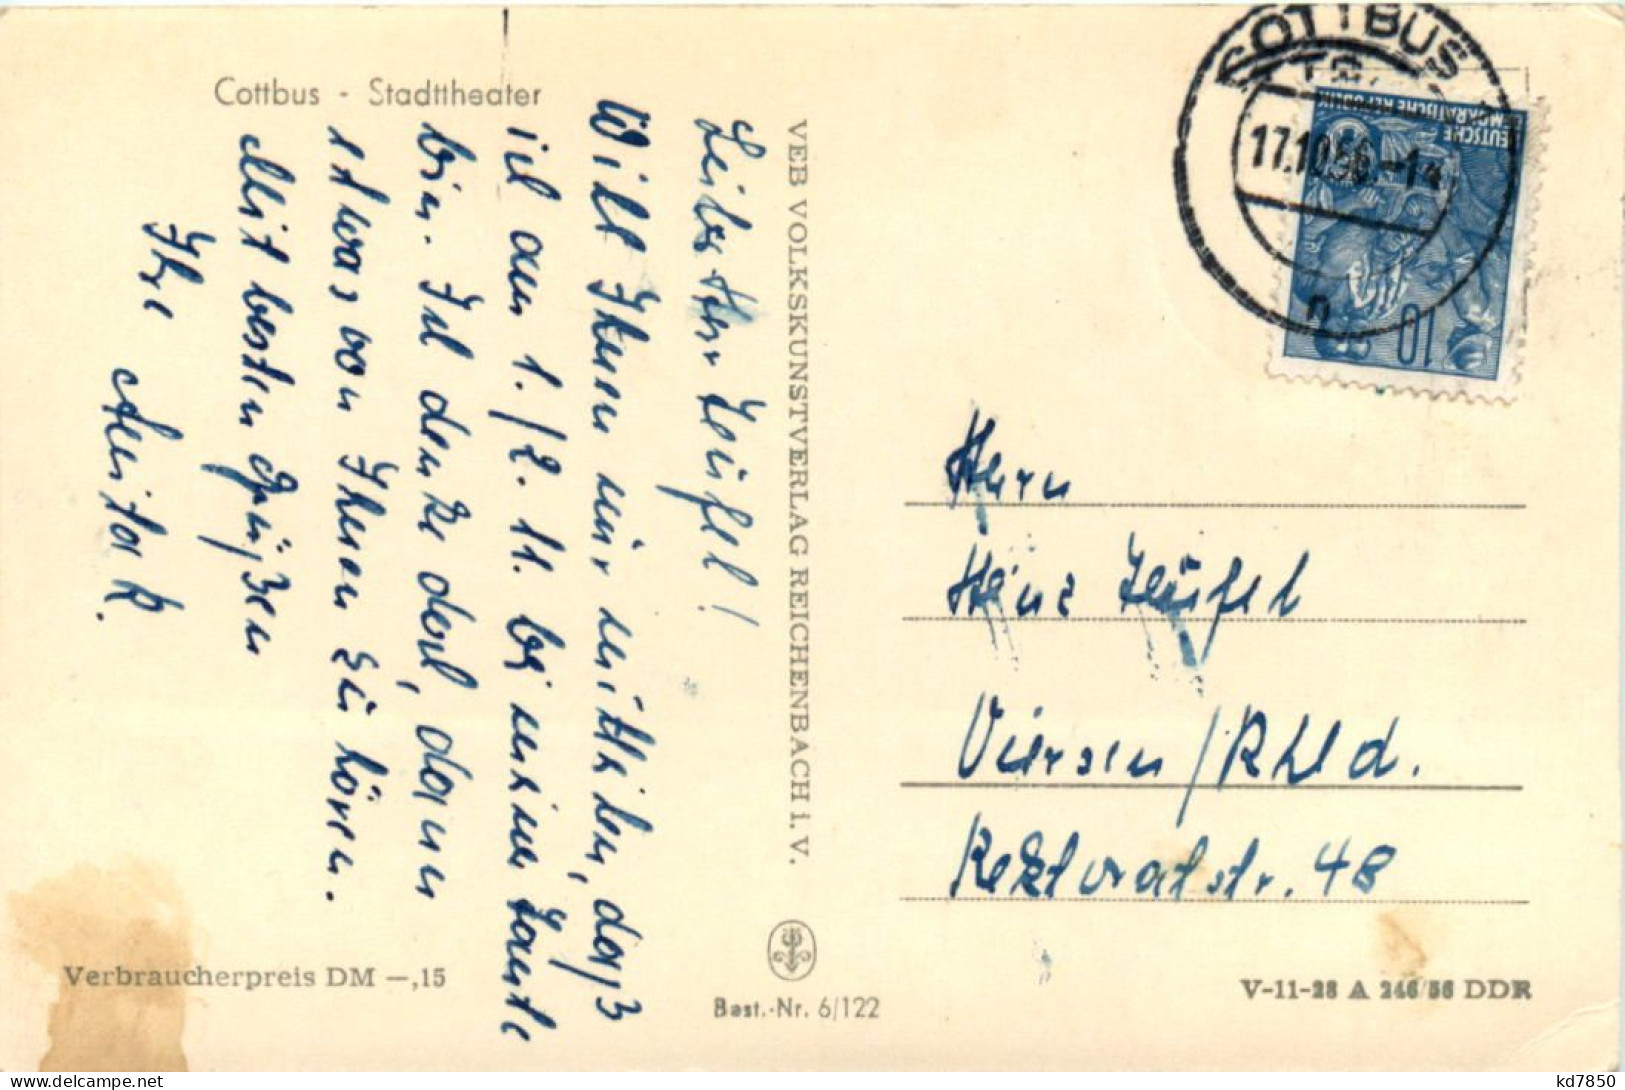 Cottbus - Stadttheater
Lieber Herr Teufel!
Will Ihnen nur mitteilen, daß
ich am 1./2. 11. bei meiner Tante
bin. Ich denke doch, dann
etwas von Ihnen zu hören.
Mit besten Grüßen
Ihre Anita R.
VEB VOLKSKUNSTVERLAG REICHENBACH i. V.
Verbraucherpreis DM —,15
Best.-Nr. 6/122
COTTBUS
17.10.56.-14
n
DEUTSCHE
DEMOKRATISCHE REPUBLIK
10
Herrn
Heinz Teufel
Viersen/Rhld.
Rektoratstr. 48
V-11-28 A 246/56 DDR
kd7850